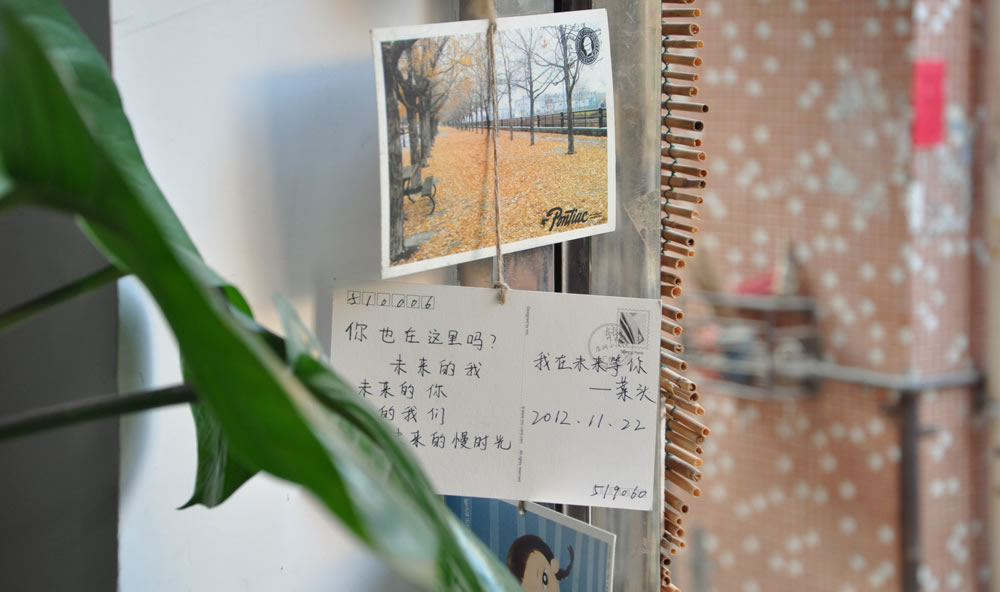 Pontiac
510006
你也在这里吗?
未来的我
未来的你
的我们
未来的慢时光
我在未来等你
—菜头
2012.11.22
519060